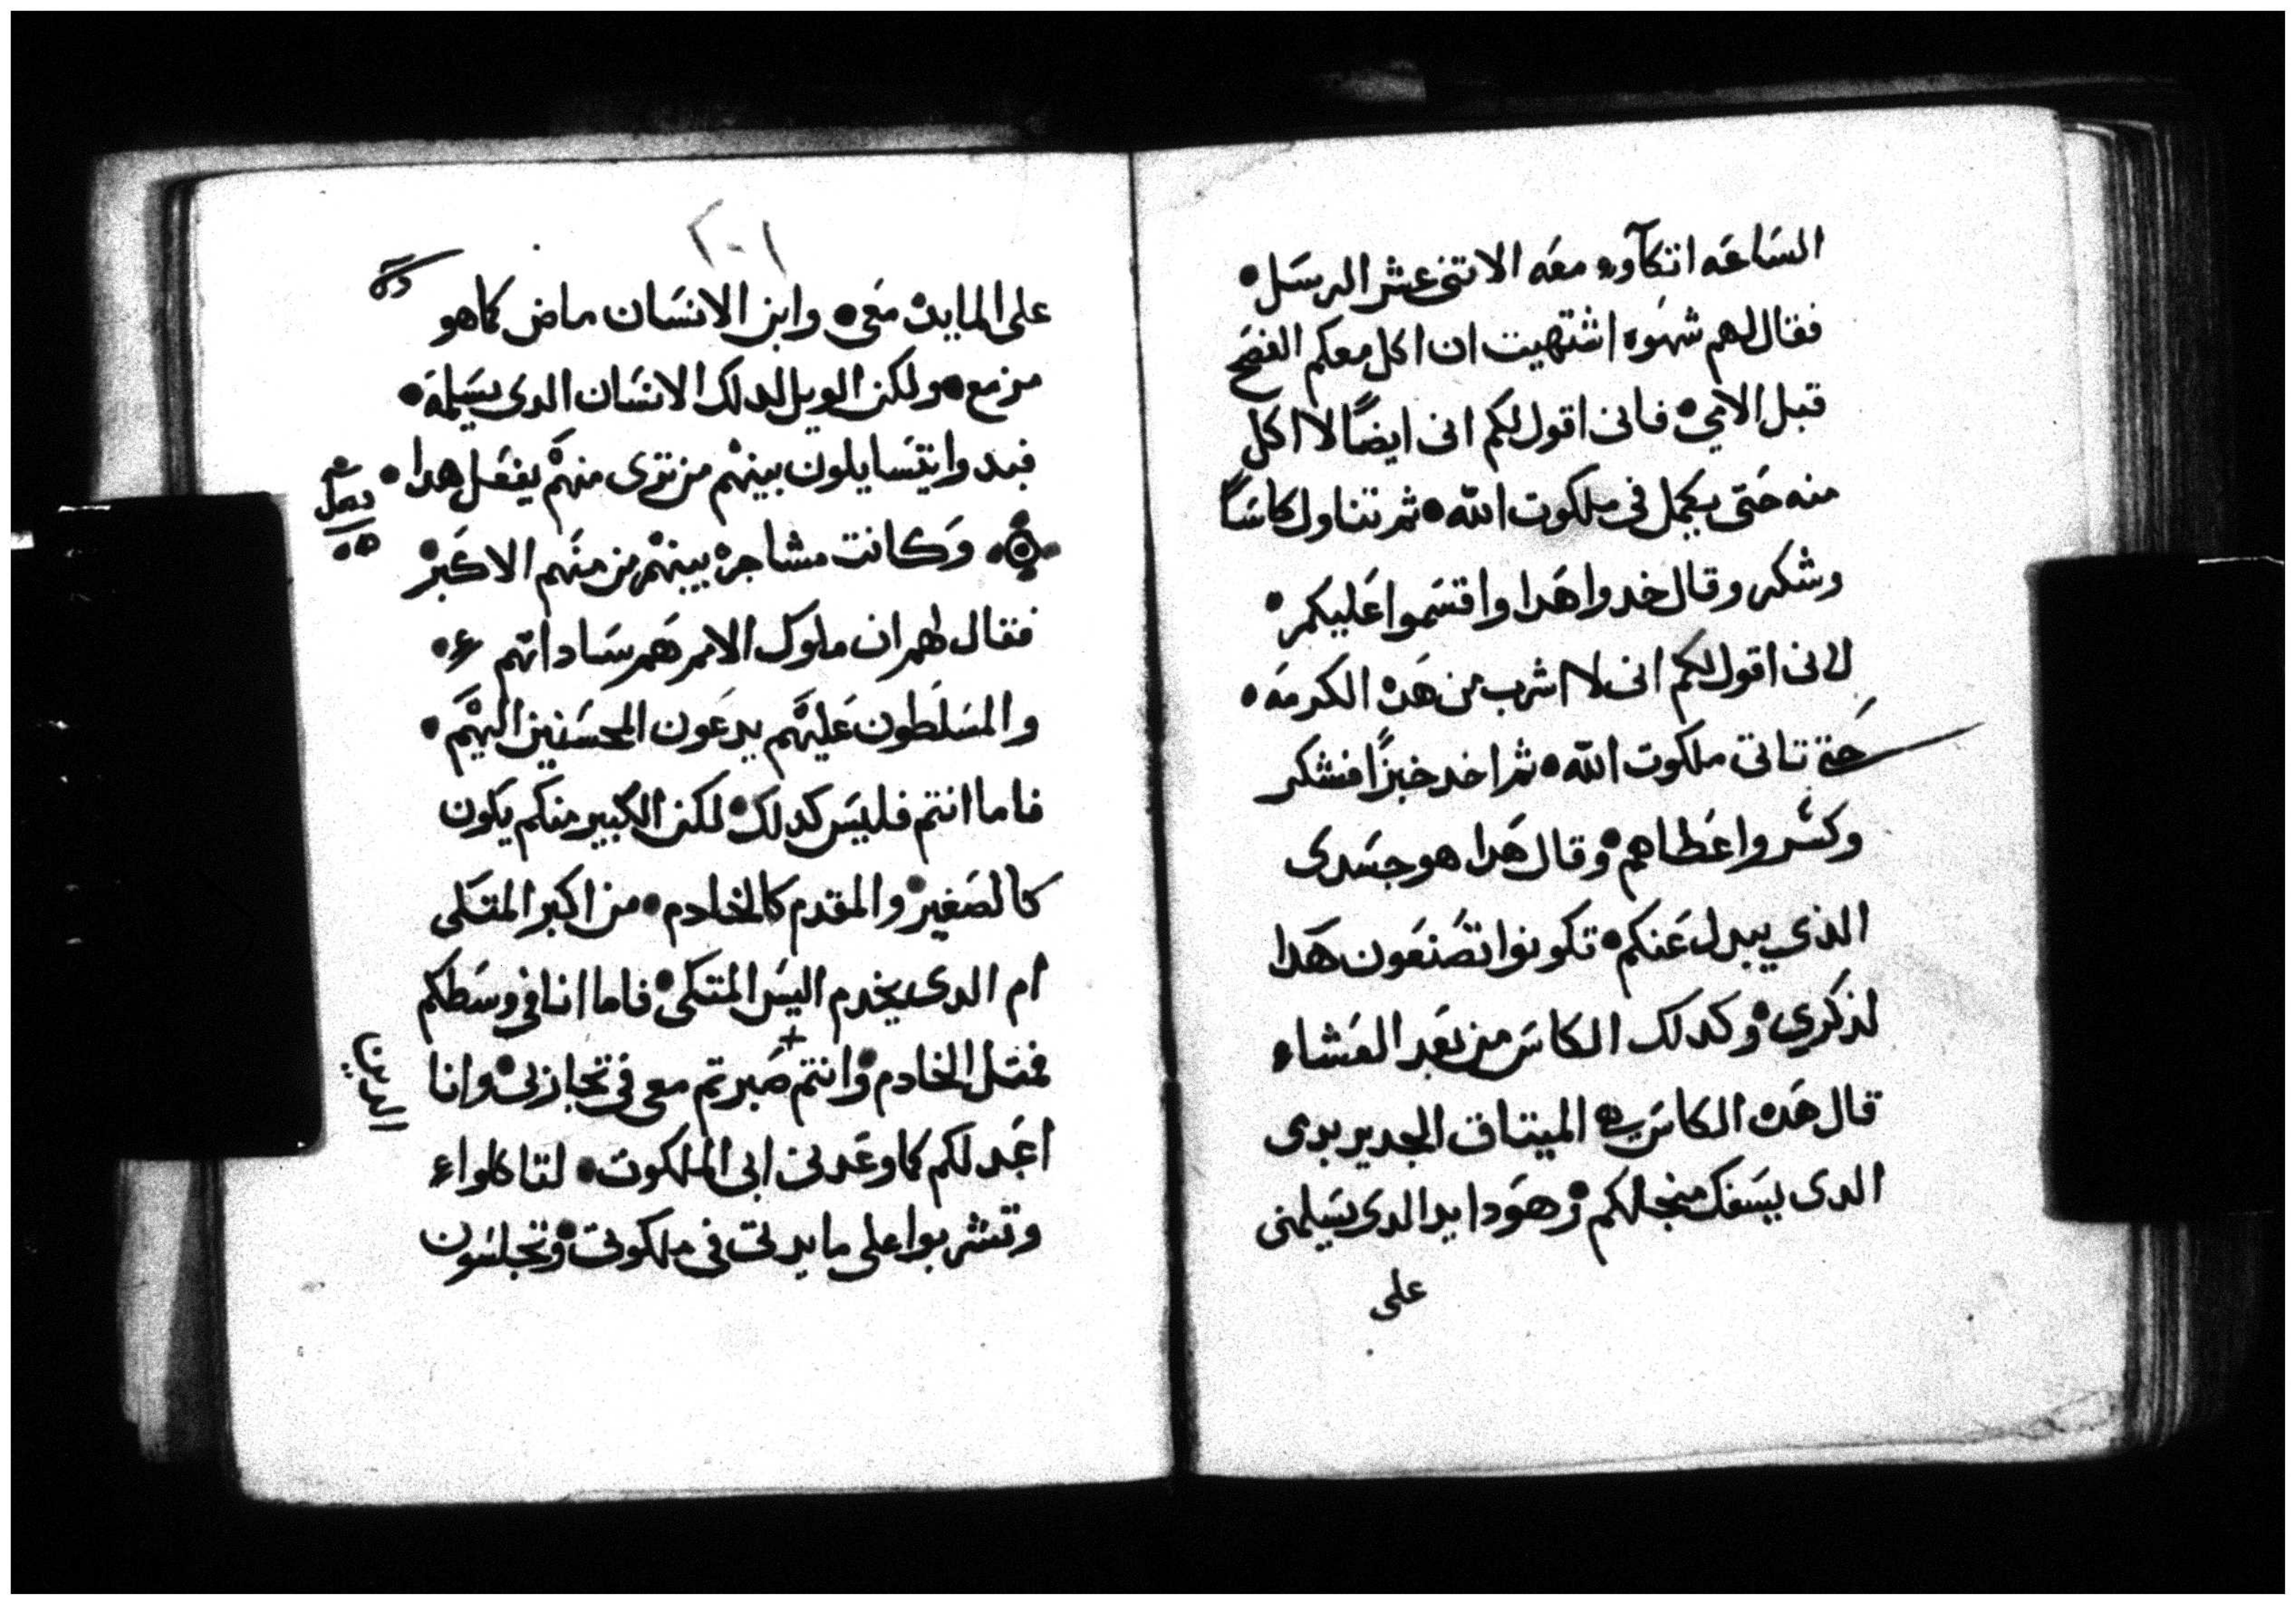 الساعه اتكاوه معه الاتنى عشر الرسل •
فقال لهم شهوه اشتهيت ان اكل معكم الفصح
قبل الامي • فانى اقول لكم انى ايضًا لا اكل
منه حتى يكمل فى ملكوت الله • ثم تناول كاسًا
وشكر وقال خدوا هدا واقسموا عليكم •
لانى اقول لكم انى لا اشرب من هده الكرمه •
حتى تاتى ملكوت الله • ثم اخد خبزًا فشكر
وكسر واعطاهم • وقال هدا هو جسدى
الذي يبدل عنكم • تكونوا تصنعون هدا
لذكري • وكدلك الكاس من بعد العشاء
قال هده الكاس هي الميتاق الجديد بدمى
الدى يسفك منجلكم • وهودا يد الدى يسلمنى
على
٢٠١
على المايده معى • وابن الانسان ماض كما هو
مزمع • ولكن الويل لدلك الانسان الدى يسلمه •
فبدوا يتسايلون بينهم من ترى منهم يفعل هدا •
وكانت مشاجره بينهم من منهم الاكبر
فقال لهم ان ملوك الامم هم ساداتهم •
والمسلطون عليهم يدعون المحسنين اليهم •
فاما انتم فليس كدلك • لكن الكبير منكم يكون
كالصغير • والمقدم كالخادم • من اكبر المتكى
ام الدى يخدم اليس المتكى • فاما انا فى وسطكم
فمتل الخادم • وانتم صبرتم معى فى تجاربى • وانا
الدين
اعد لكم كما وعدنى ابى الملكوت • لتاكلوا
وتشربوا على مايدتى فى ملكوتى • وتجلسون